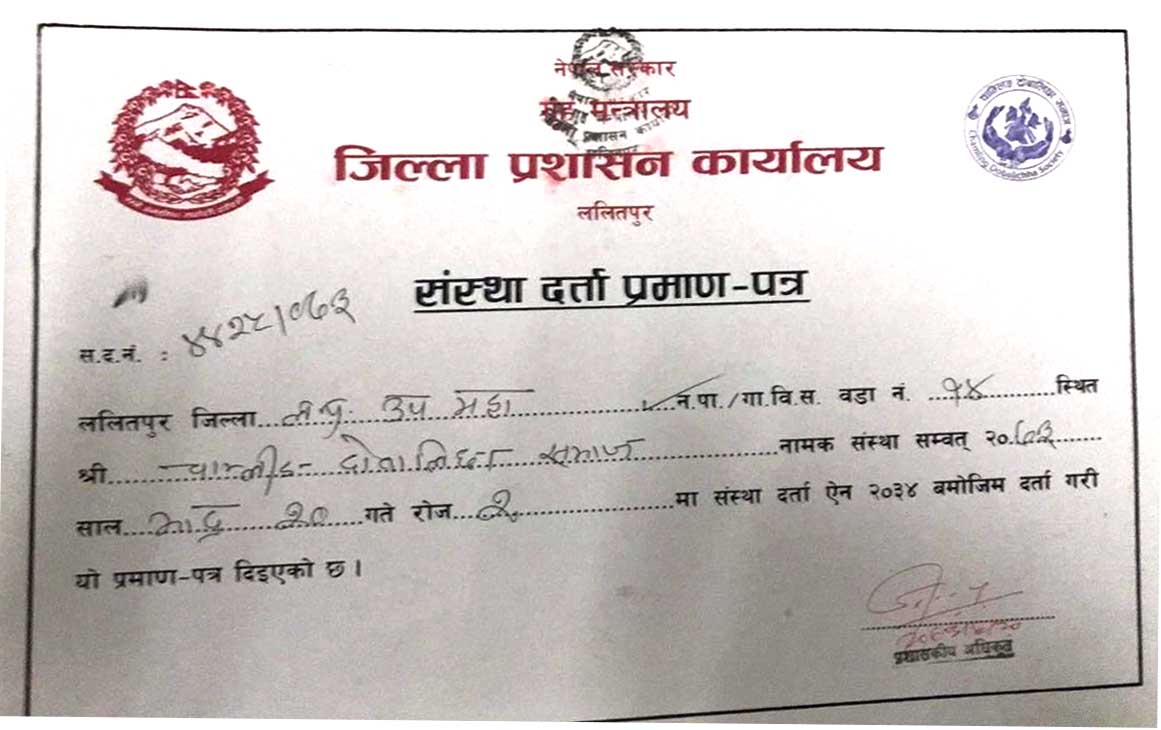 नेपाल सरकार
गृह मन्त्रालय
जिल्ला प्रशासन कार्यालय
ललितपुर
चाम्लिङ दोबालिछा समाज
Chamling Dobalichha Society
संस्था दर्ता प्रमाण-पत्र
स.द.नं. :
ललितपुर जिल्ला ल.पु. उप महा न.पा./गा.वि.स. वडा नं. १४ स्थित
श्री चाम्लीङ दोवालिछा समाज नामक संस्था सम्वत् २०६३
साल भाद्र २० गते रोज मा संस्था दर्ता ऐन २०३४ बमोजिम दर्ता गरी
यो प्रमाण-पत्र दिइएको छ ।
प्रशासकीय अधिकृत